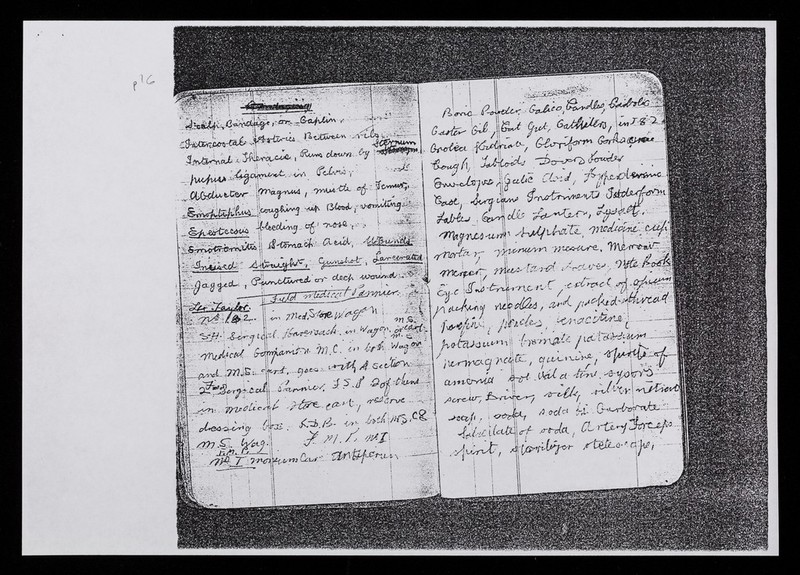 p16
Bandaging
Scalp, Bandage, or Caplin,
Intercostal Arteries Between ribs
Internal Thoracic, Runs down by Sternum
ligament in Pelvis,
Abductor magnus, muscle of Femur,
coughing up Blood, vomiting
bleeding of nose,
Stomach Acid, Wounds
Incised Straight, Gunshot, Lancerated
Jagged, Punctured or deep wound
Field Medical Pannier
No. 1 & 2 in Med. Store Wagon
Surgical Haversack in Wagon, or cart
Medical Companion M.C. in both Wagon
and M.S. cart, goes with A Section
Surgical Pannier, I S.P 2 of these
in medical store cart, reserve
dressing box. in both M.S. C &
M.S. Wag. F. M. P. No I
No I
Boric Powder, Calico, Candles, Carbolic
Castor Oil, Cat Gut, Catheters, in 7 8 2
Cloriform
Cough, Tabloids Dovers Powder
Envelopes, Galic Acid, Hyperdermic
Case, Surgians Instruments
Table, Candle Lantern, Lysoll.
Magnesum Sulphate, medicine cup
mortar, minum measure,
mustard leaves, Note Book
Eye Instrument, extract of opium
packing needles, and packed thread
potassium bromate potassium
permagnate, quinine, spirits of
amonia sal vol a tine, sysors
screw Driver, silk, silver nitrate
soap, soda, soda bi Carbonate
of soda, Artery Forceps
spirit, stelescope,